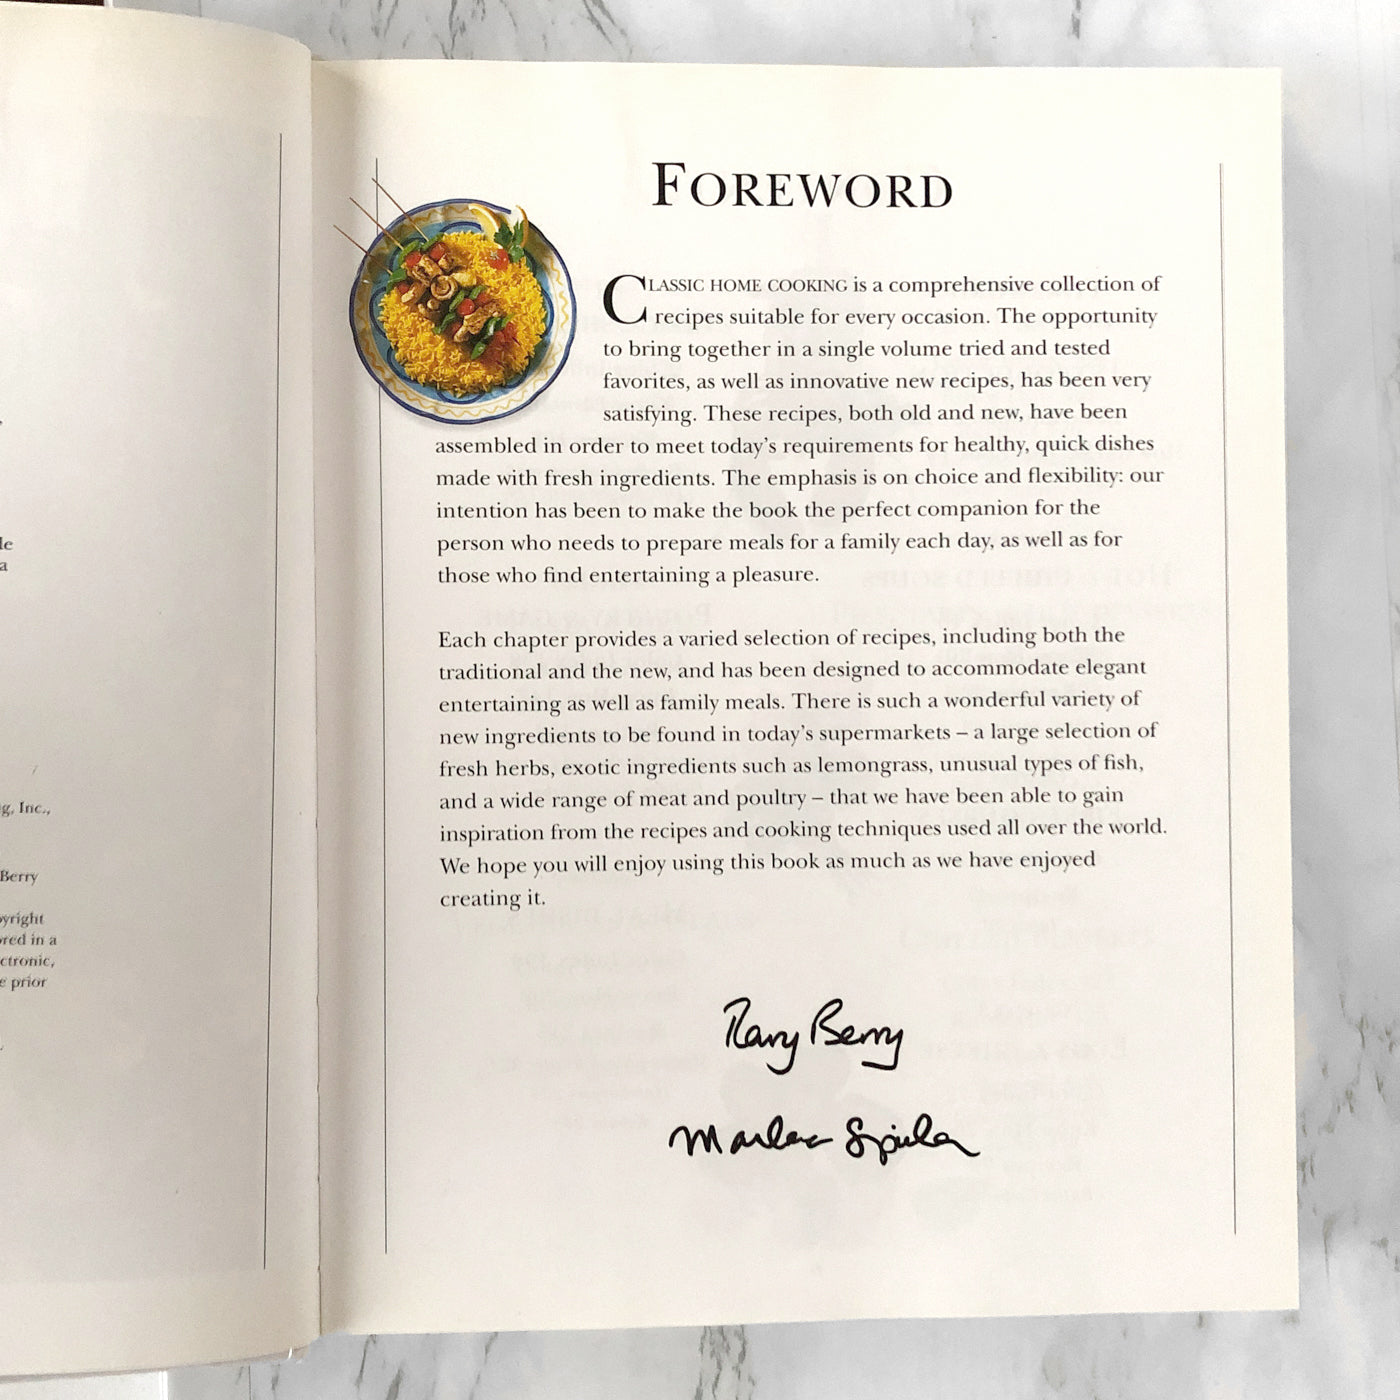 le
a
g, Inc.,
Berry
yright
ored in a
ctronic,
e prior
FOREWORD
CLASSIC HOME COOKING is a comprehensive collection of
recipes suitable for every occasion. The opportunity
to bring together in a single volume tried and tested
favorites, as well as innovative new recipes, has been very
satisfying. These recipes, both old and new, have been
assembled in order to meet today's requirements for healthy, quick dishes
made with fresh ingredients. The emphasis is on choice and flexibility: our
intention has been to make the book the perfect companion for the
person who needs to prepare meals for a family each day, as well as for
those who find entertaining a pleasure.
Each chapter provides a varied selection of recipes, including both the
traditional and the new, and has been designed to accommodate elegant
entertaining as well as family meals. There is such a wonderful variety of
new ingredients to be found in today's supermarkets – a large selection of
fresh herbs, exotic ingredients such as lemongrass, unusual types of fish,
and a wide range of meat and poultry – that we have been able to gain
inspiration from the recipes and cooking techniques used all over the world.
We hope you will enjoy using this book as much as we have enjoyed
creating it.
Mary Berry
Marlena Spieler